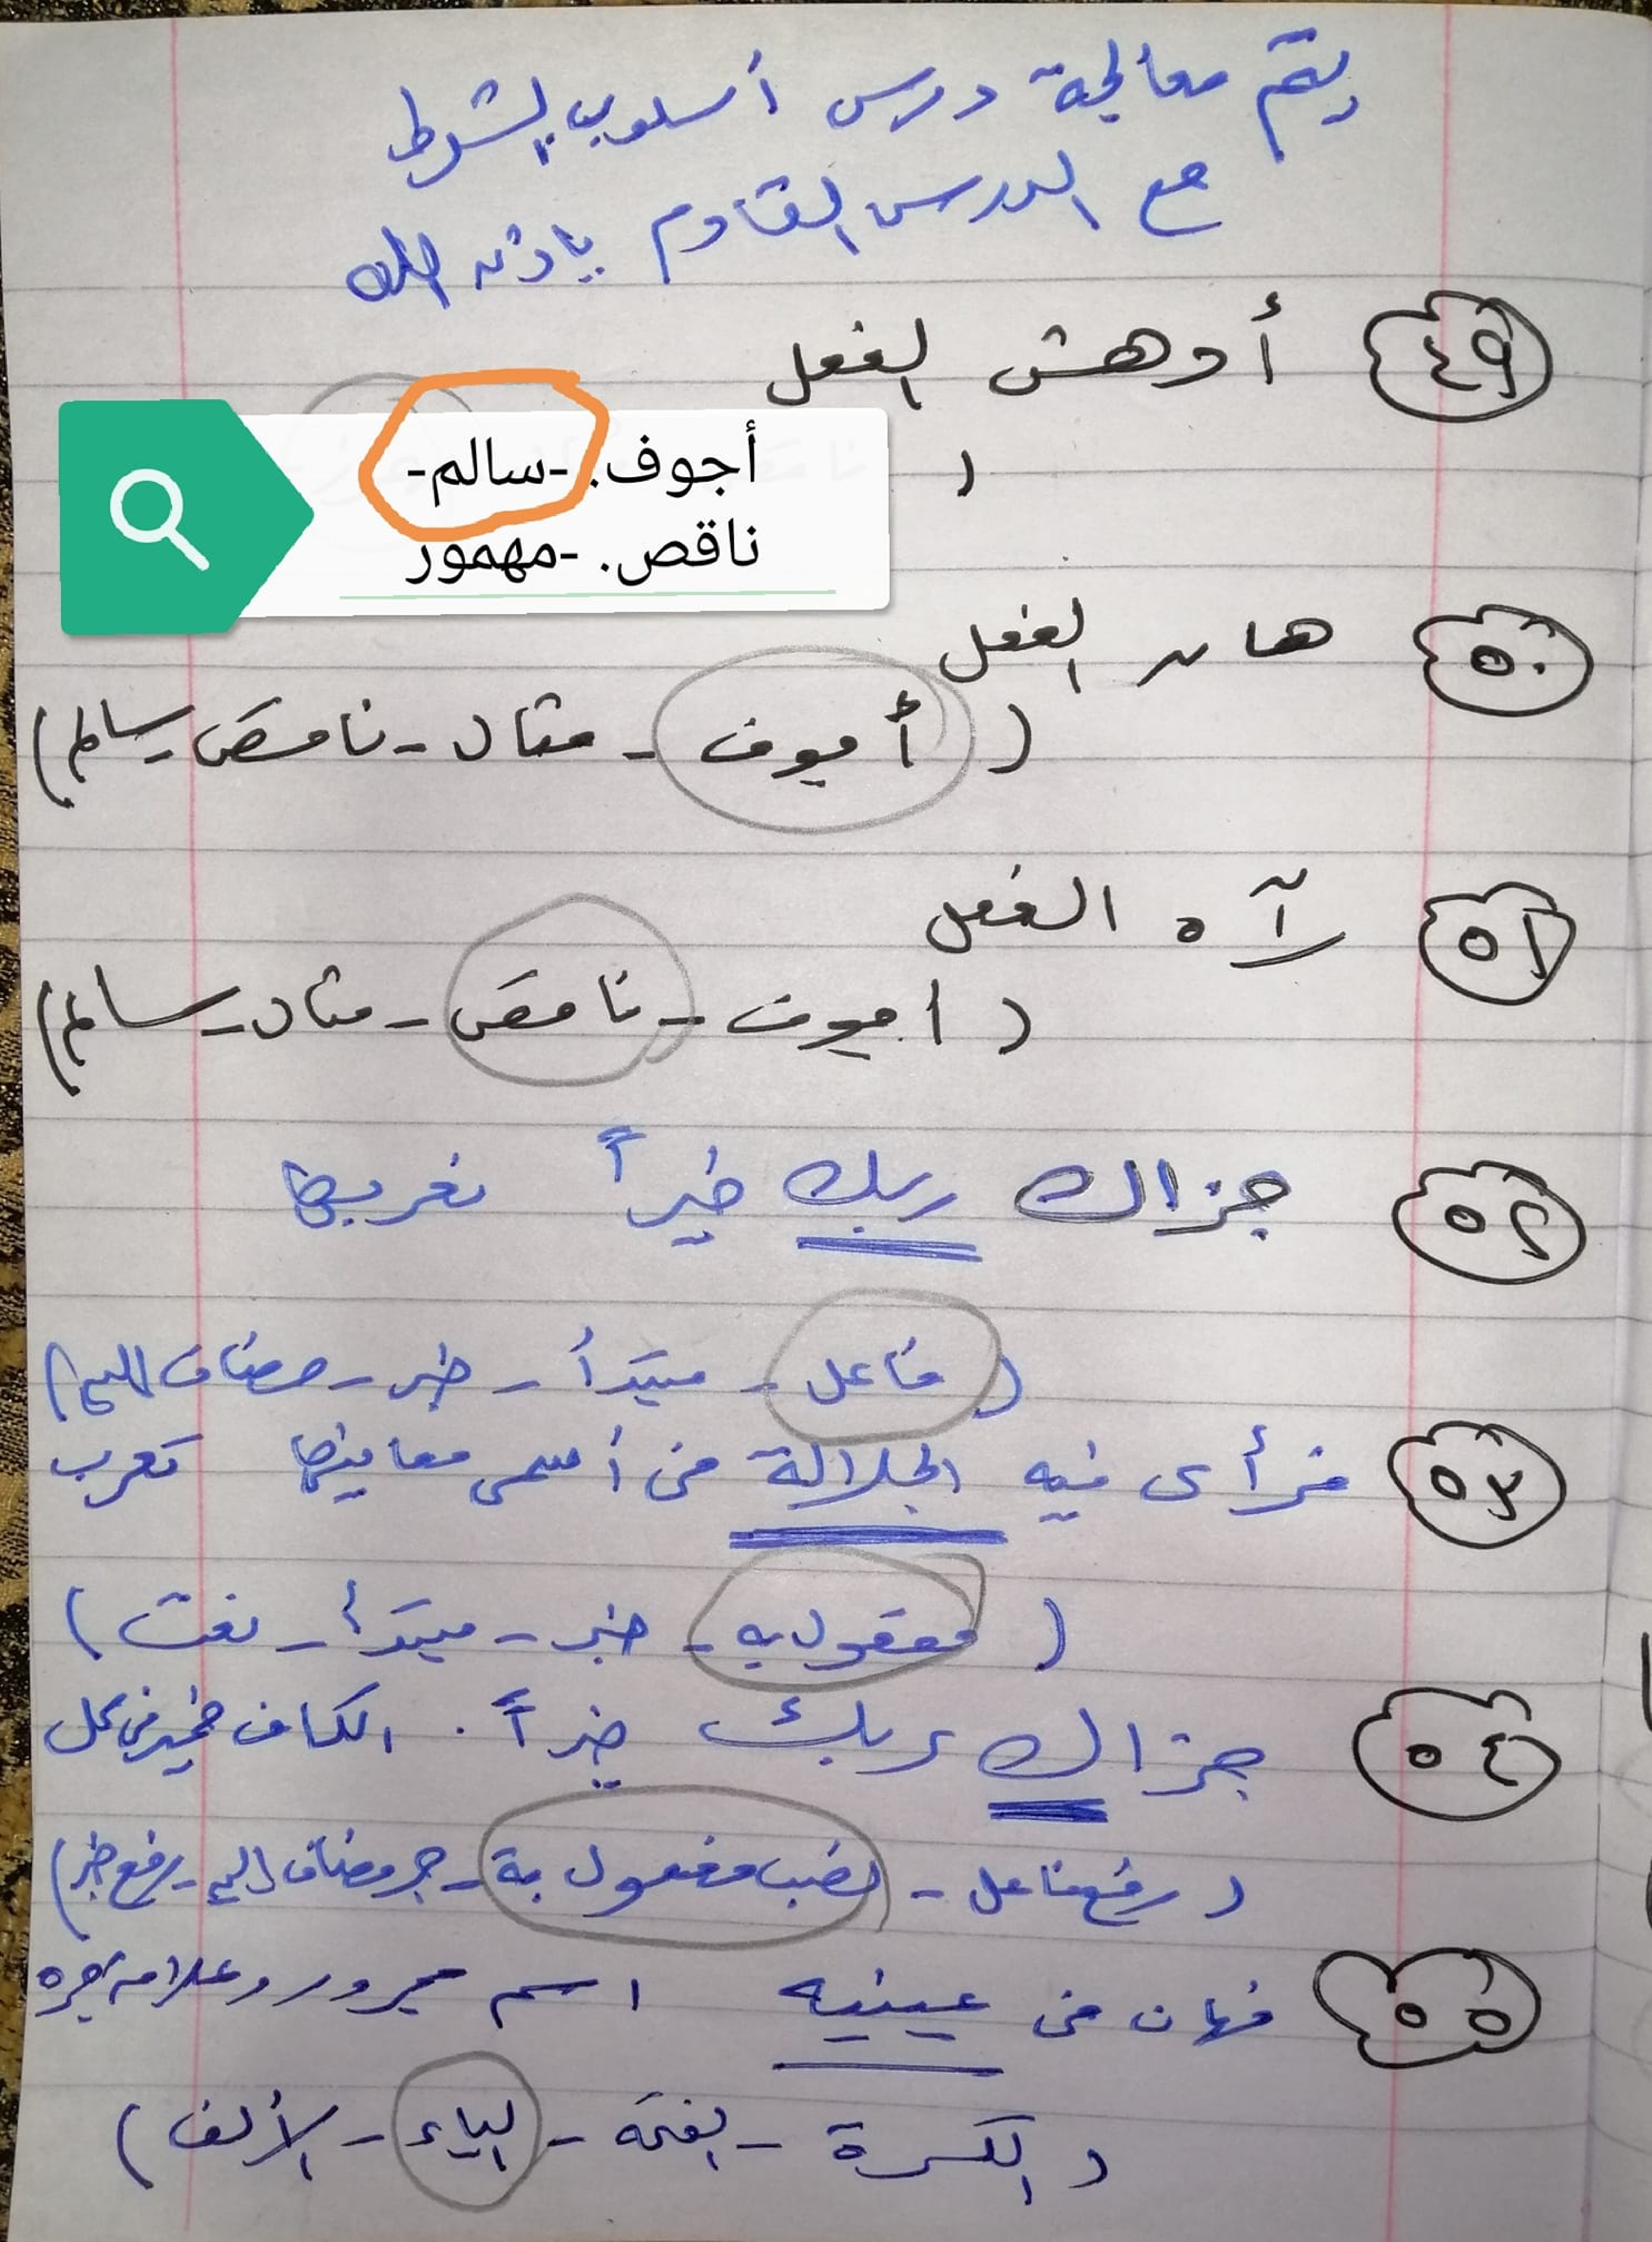 يتم معالجة درس أسلوب الشرط
مع الدرس القادم بإذن الله
٤٩ أدهش الفعل
(
أجوف. -سالم-
ناقص. -مهموز
٥٠ هان الفعل
( أجوف - مثال - ناقص - سالم )
٥١ رآه الفعل
( اجوف - ناقص - مثال - سالم )
٥٢ جزاك ربك خيراً نعربها
( فاعل - مبتدأ - خبر - مضاف إليه )
٥٣ فرأى فيه الجلالة في أسمى معانيها تعرب
( مفعول به - خبر - مبتدأ - نعت )
٥٤ جزاك ربك خيراً . الكاف ضمير في محل
( رفع فاعل - نصب مفعول بة - جر مضاف إليه - رفع خبر )
٥٥ فهان في عينيه اسم مجرور وعلامة جره
( الكسرة - الفتحة - الياء - الألف )